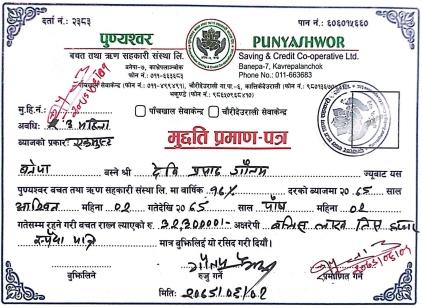 दर्ता नं.: २३८३
पान नं.: ६०६०१५६६०
पुण्यश्वर
बचत तथा ऋण सहकारी संस्था लि.
बनेपा-७, काभ्रेपलाञ्चोक
फोन नं. ०११-६६३६८३
PUNYASHWOR
Saving & Credit Co-operative Ltd.
Banepa-7, Kavrepalanchok
Phone No.: 011-663683
मु.हि.नं.:
पाँचखाल सेवाकेन्द्र
चौरीदेउराली सेवाकेन्द्र
अवधि: ३ महिना
ब्याजको प्रकार:
मुद्दति प्रमाण-पत्र
बनेपा बस्ने श्री देवि प्रसाद गौतम ज्यूबाट यस
पुण्यश्वर बचत तथा ऋण सहकारी संस्था लि. मा वार्षिक १६% दरको ब्याजमा २०६५ साल
आश्विन महिना ०२ गतेदेखि २०६५ साल पौष महिना ०२
गतेसम्म रहने गरी बापत राख्न ल्याएको रु. ३२,३००००।- अक्षरेपी बत्तिस लाख तिस हजार
रूपैया मात्र मात्र बुझिलिई यो रसिद गरी दियौं।
बुझिलिने
रुजु गर्ने
प्रमाणित गर्ने
मिति: २०६५/०६/०२